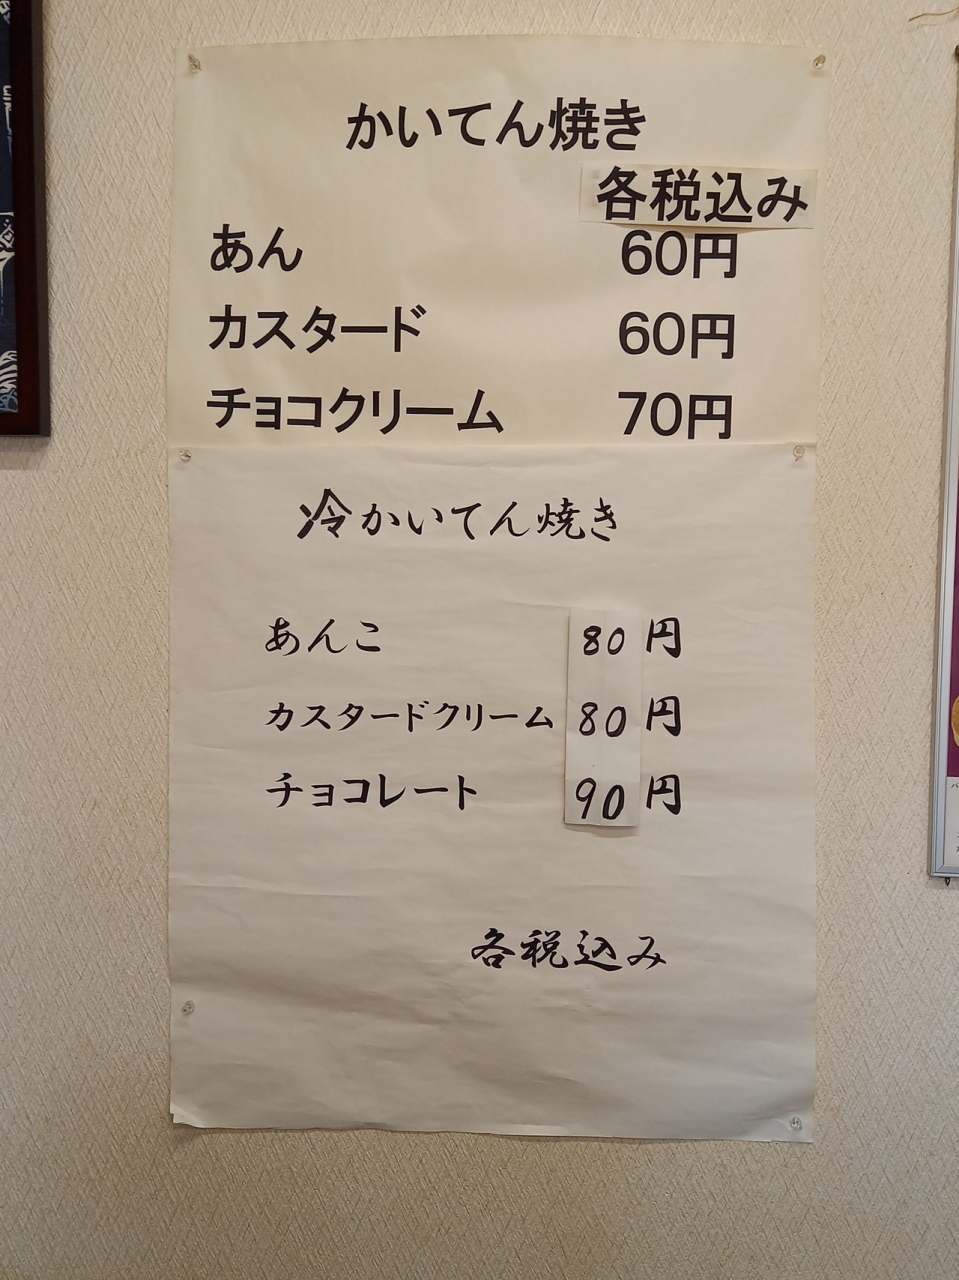 かいてん焼き
各税込み
あん 60円
カスタード 60円
チョコクリーム 70円
冷かいてん焼き
あんこ 80円
カスタードクリーム 80円
チョコレート 90円
各税込み